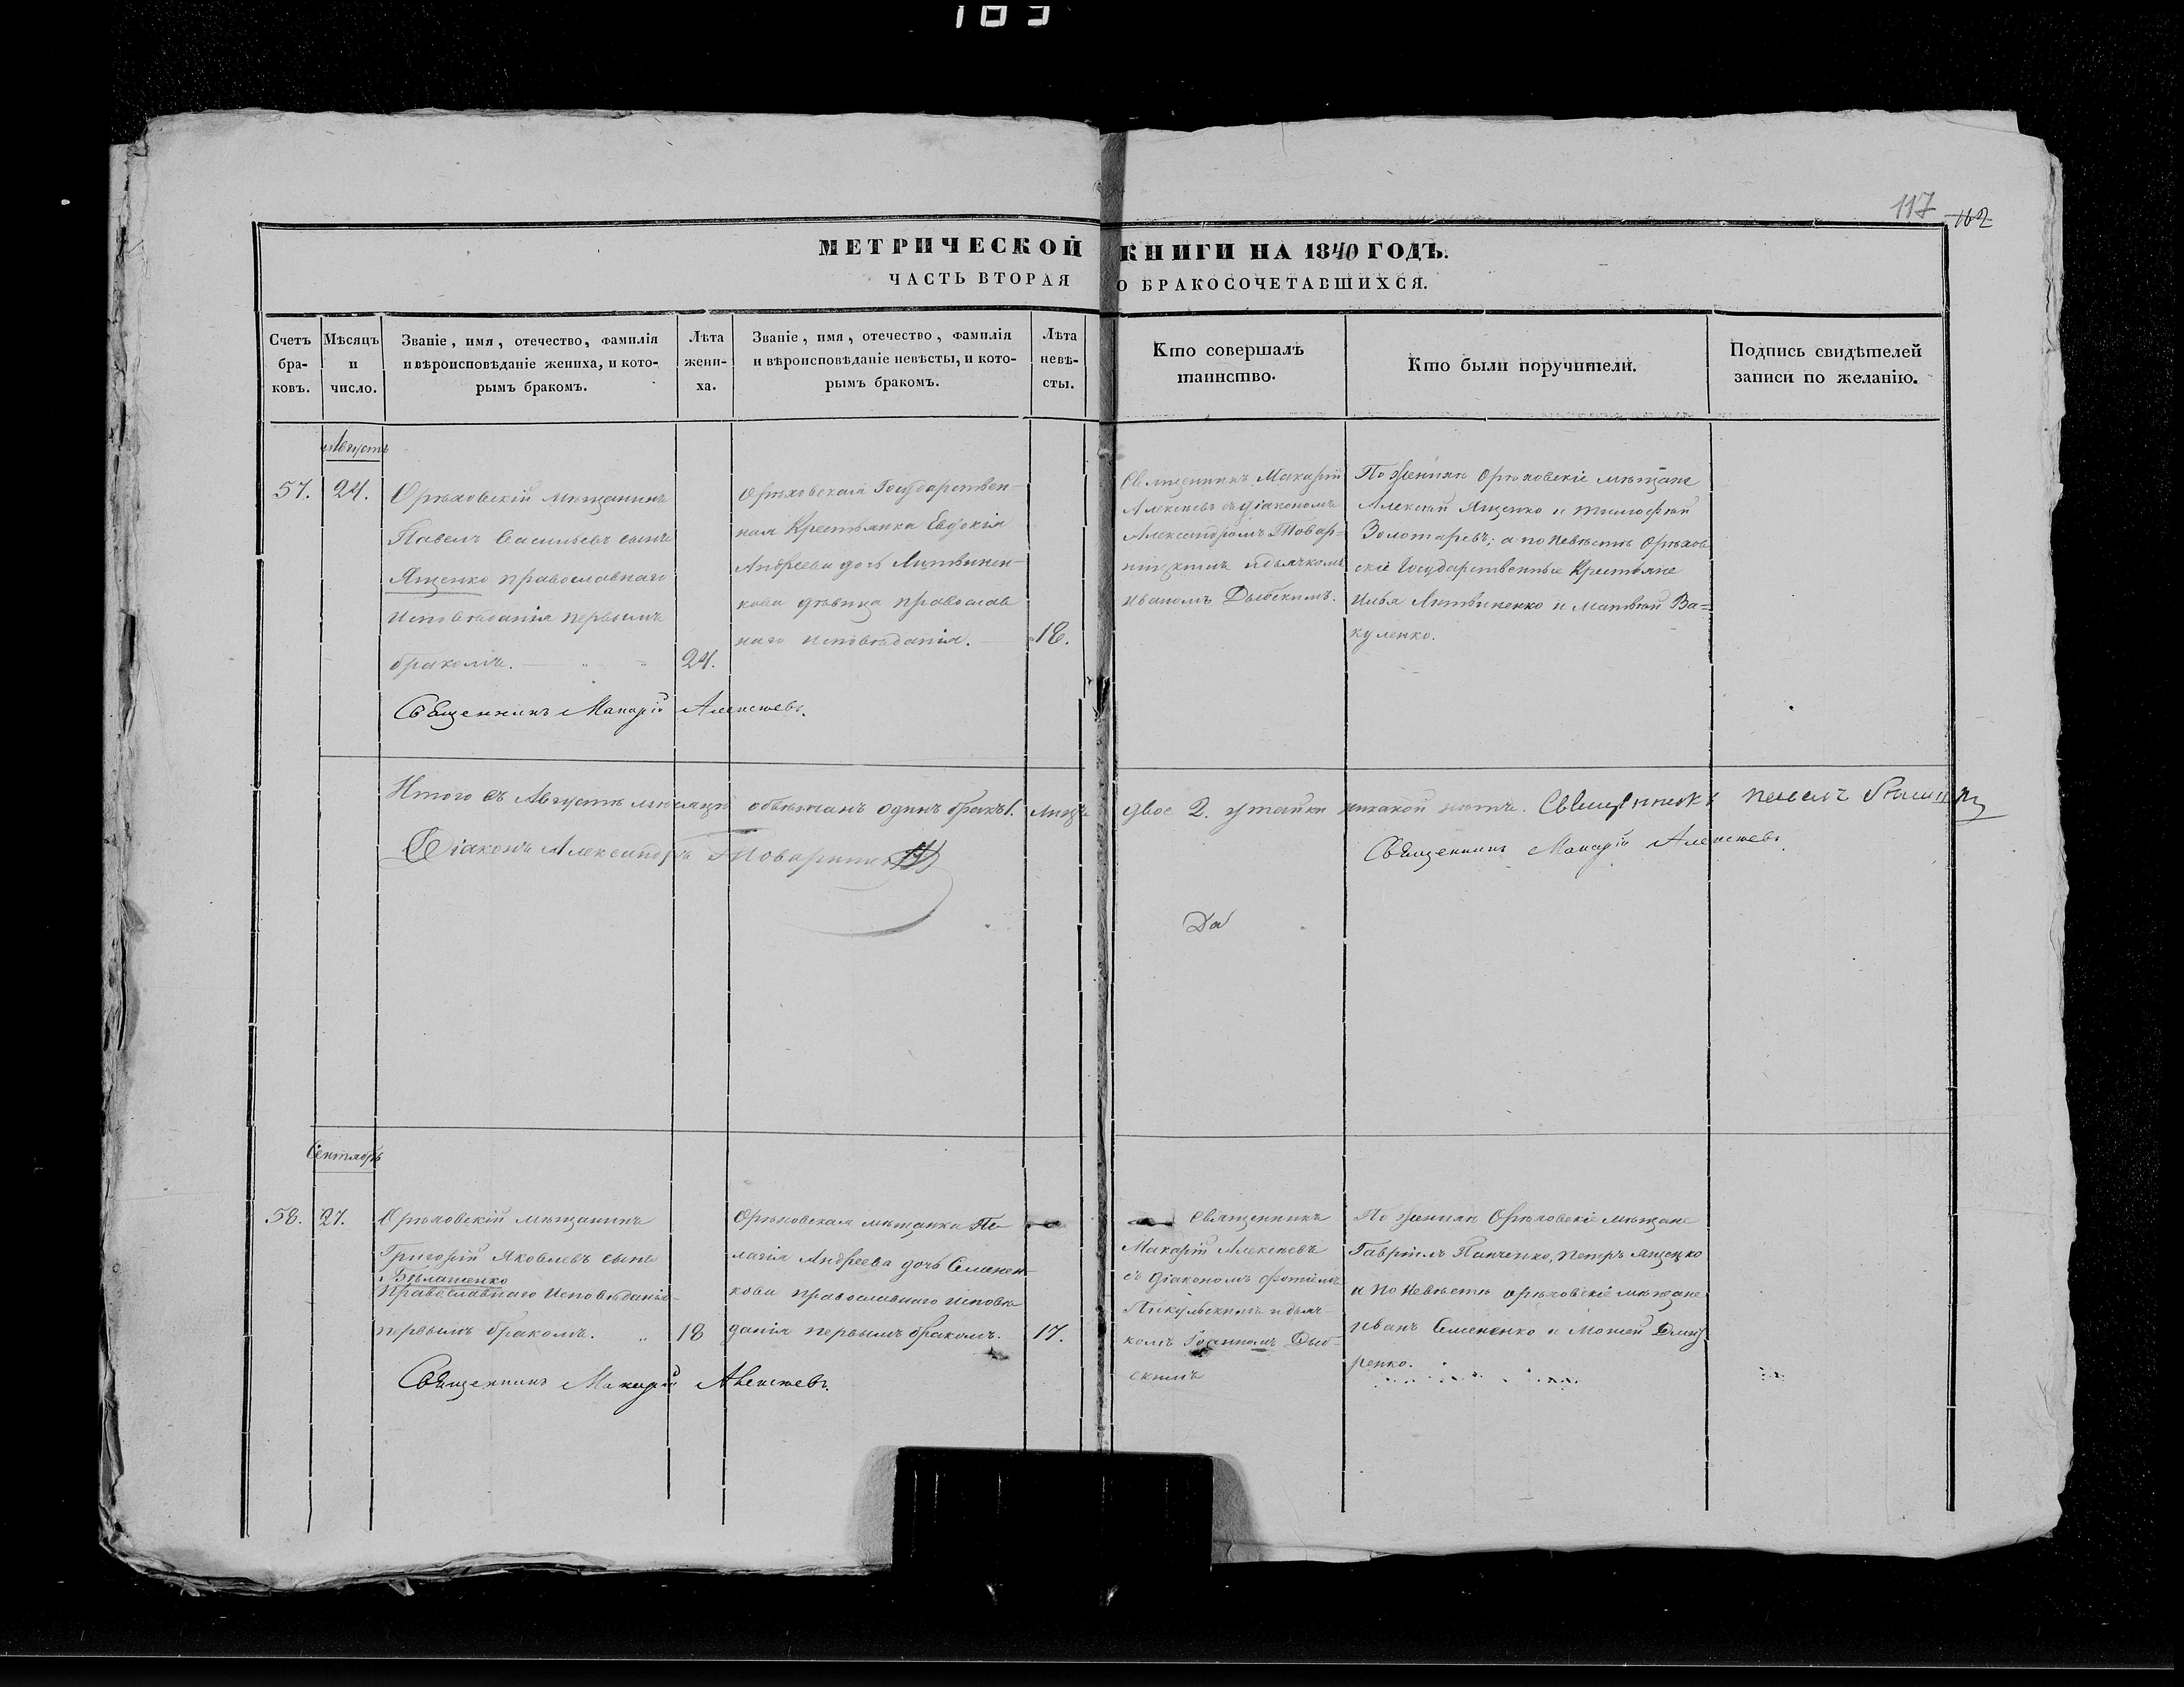 117 162
МЕТРИЧЕСКОЙ КНИГИ НА 1840 ГОДЪ.
ЧАСТЬ ВТОРАЯ О БРАКОСОЧЕТАВШИХСЯ.
Счетъ
бра-
ковъ.
Мѣсяцъ
и
число.
Званіе, имя, отечество, фамилія
и вѣроисповѣданіе жениха, и кото-
рымъ бракомъ.
Лѣта
жени-
ха.
Званіе, имя, отечество, фамилія
и вѣроисповѣданіе невѣсты, и кото-
рымъ бракомъ.
Лѣта
невѣ-
сты.
Кто совершалъ
таинство.
Кто были поручители.
Подпись свидѣтелей
записи по желанію.
Августъ
57.
24.
Орѣховскій мѣщанинъ
Павелъ Васильевъ сынъ
Ященко православнаго
исповѣданія первымъ
бракомъ.
24.
Орѣховская Государствен-
ная Крестьянка Евдокія
Андреева дочь Литвинен-
кова дѣвица православ
наго исповѣданія.
18.
Священникъ Макарій
Алексѣевъ съ діакономъ
Александромъ Товар-
и дьячкомъ
Иваномъ Дыбскимъ.
По женихѣ Орѣховскіе мѣщане
Алексѣй Ященко и Тимофѣй
Золотаревъ; а по невѣстѣ Орѣхов
скіе Государственные Крестьяне
Илья Литвиненко и Матвѣй Ва=
куленко.
Священникъ Макарій Алексѣевъ.
Итого въ Августѣ мѣсяцѣ обвѣнчанъ одинъ бракъ 1. лицъ двое 2. утайки никакой нѣтъ. Священникъ Павелъ
Діаконъ Александръ
Священникъ Макарій Алексѣевъ.
Да
Сентябрь
58.
27.
Орѣховскій мѣщанинъ
Григорій Яковлевъ сынъ
Бѣлашенко
Православнаго Исповѣданія
первымъ бракомъ.
18
Орѣховская мѣщанка Пе-
лагія Андреева дочь Семенен-
кова православнаго исповѣ
данія первымъ бракомъ.
17.
Священникъ
Макарій Алексѣевъ
съ діакономъ Фотіемъ
и дьяч-
комъ Іоанномъ Дыб-
скимъ
По женихѣ Орѣховскіе мѣщане
Гавріилъ Панченко, Петръ Ященко
а по невѣстѣ орѣховскіе мѣщане
Иванъ Семененко и Мокей Дмит
ренко.
Священникъ Макарій Алексѣевъ.